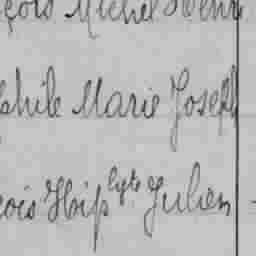 çois Michel Henri
phile Marie Joseph
çois Hiplyte Julien